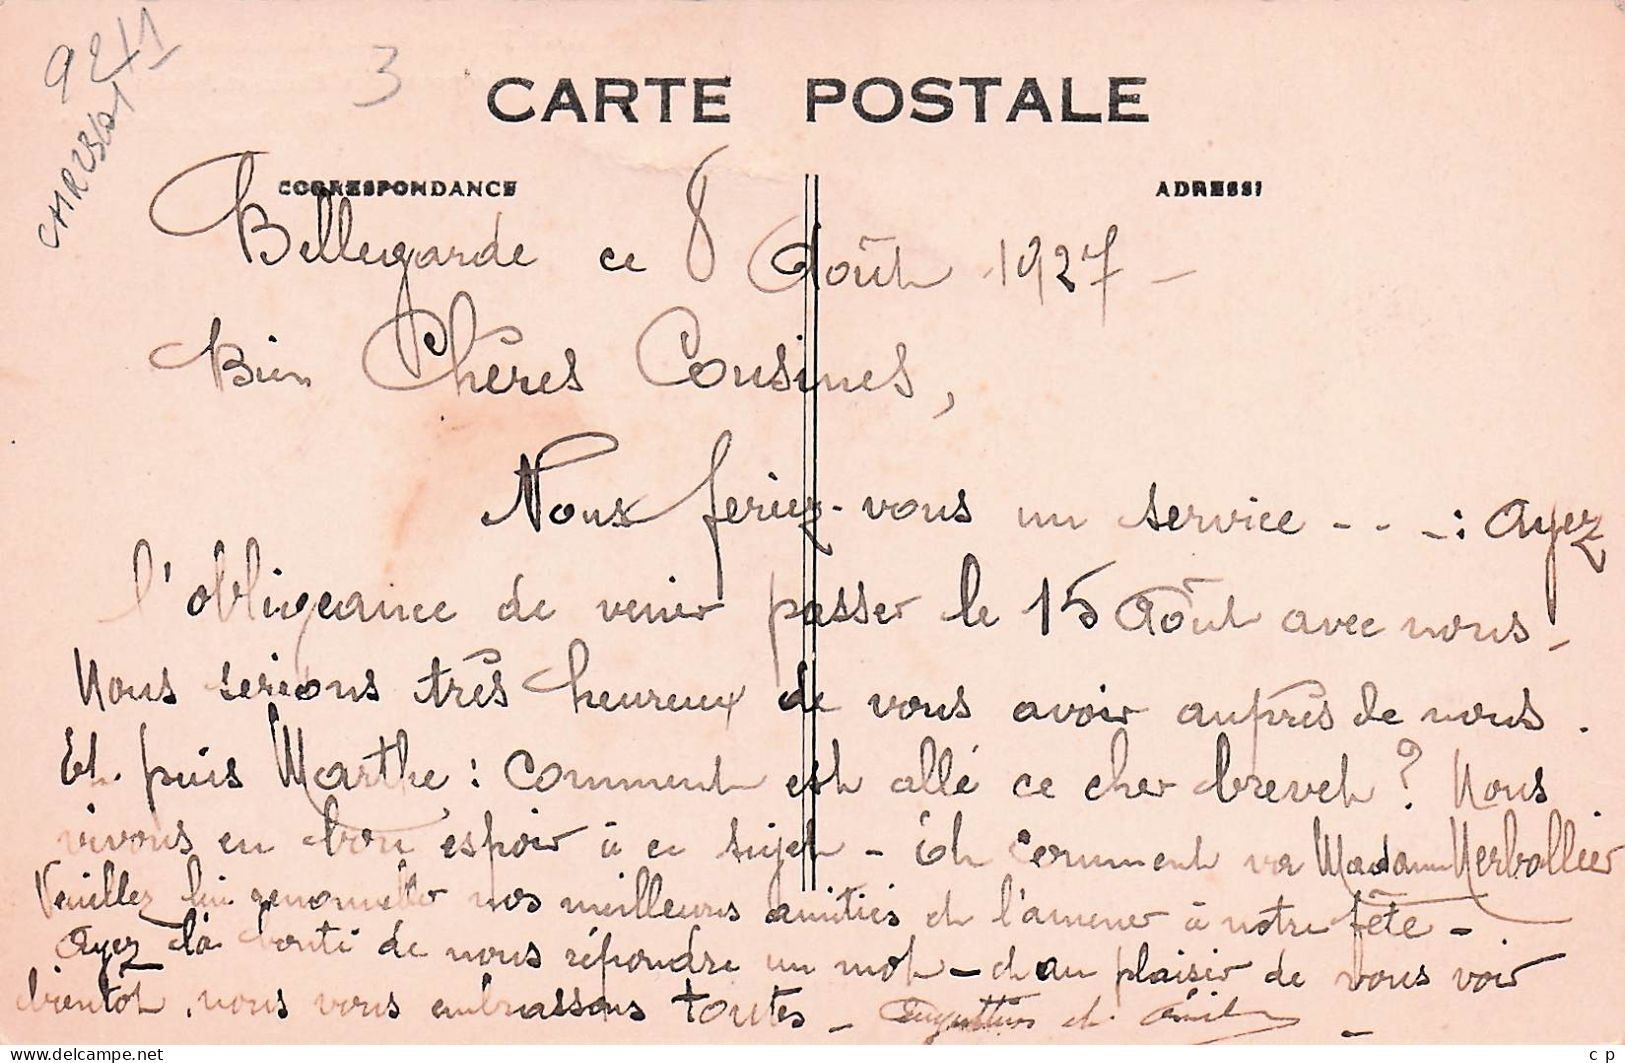 9241
3
CARTE POSTALE
CORRESPONDANCE
ADRESSE
Bellegarde ce 8 Août 1927 -
Bien Chères Cousines,
Nous feriez-vous un service - - - : Ayez
l'obligeance de venir passer le 15 Août avec nous -
Nous serions très heureux de vous avoir auprès de nous.
Et puis Marthe : comment est allé ce cher brevet ? Nous
vivons en bon espoir à ce sujet - Et comment va Madame Nerbollier
Veuillez lui renouveller nos meilleures amitiés et l'amener à notre fête -
Ayez la bonté de nous répondre un mot - et au plaisir de vous voir
bientôt, nous vous embrassons toutes -
www.delcampe.net
c p